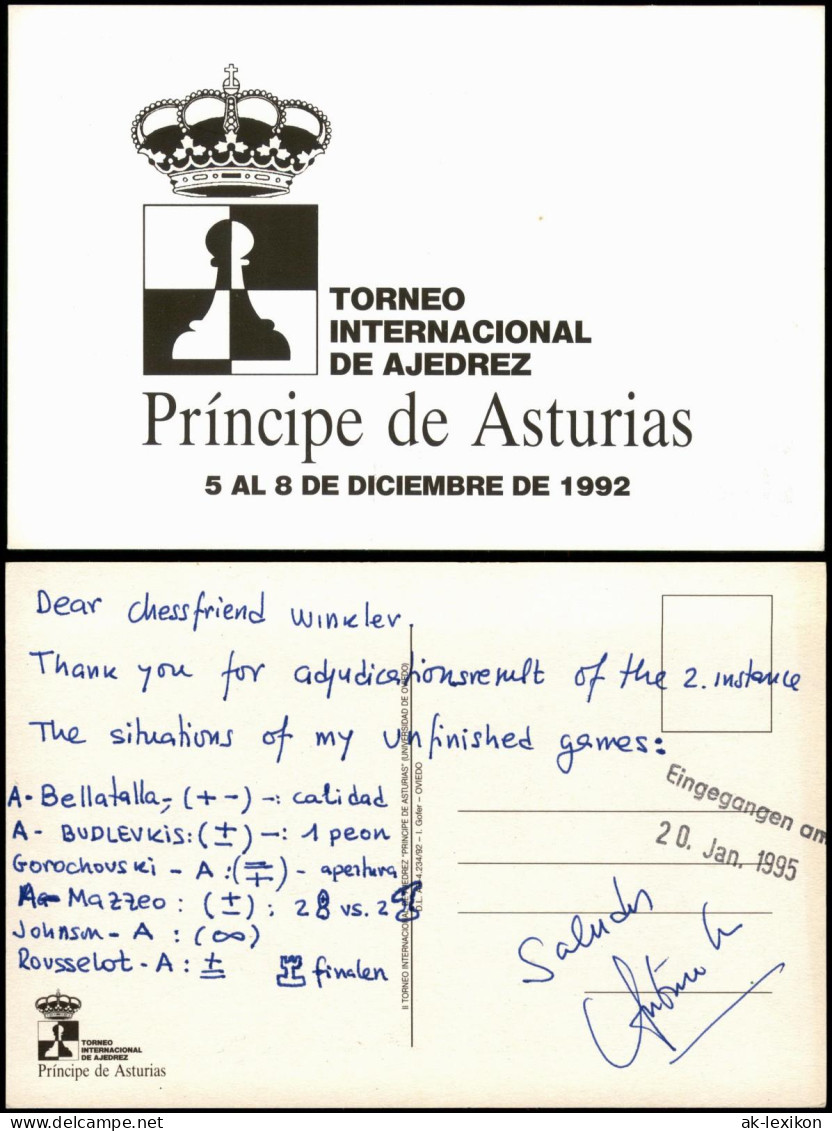 TORNEO
INTERNACIONAL
DE AJEDREZ
Príncipe de Asturias
5 AL 8 DE DICIEMBRE DE 1992
Dear chessfriend Winkler.
Thank you for adjudicationsresult of the 2. instance
The situations of my unfinished games:
A - Bellatalla, (+-) -: calidad
A - BUDLEVKIS: (±) -: 1 peon
Gorochovski - A : (∓) - apertura
A - Mazzeo : (±) : 2 vs. 2
Johnson - A : (∞)
Rousselot - A : ± finalen
II TORNEO INTERNACIONAL DE AJEDREZ "PRINCIPE DE ASTURIAS" (UNIVERSIDAD DE OVIEDO)
D.L. AS-4.234/92 - I. Gofer - OVIEDO
Eingegangen am
20. Jan. 1995
Saludos
António
TORNEO
INTERNACIONAL
DE AJEDREZ
Príncipe de Asturias
ak-lexikon